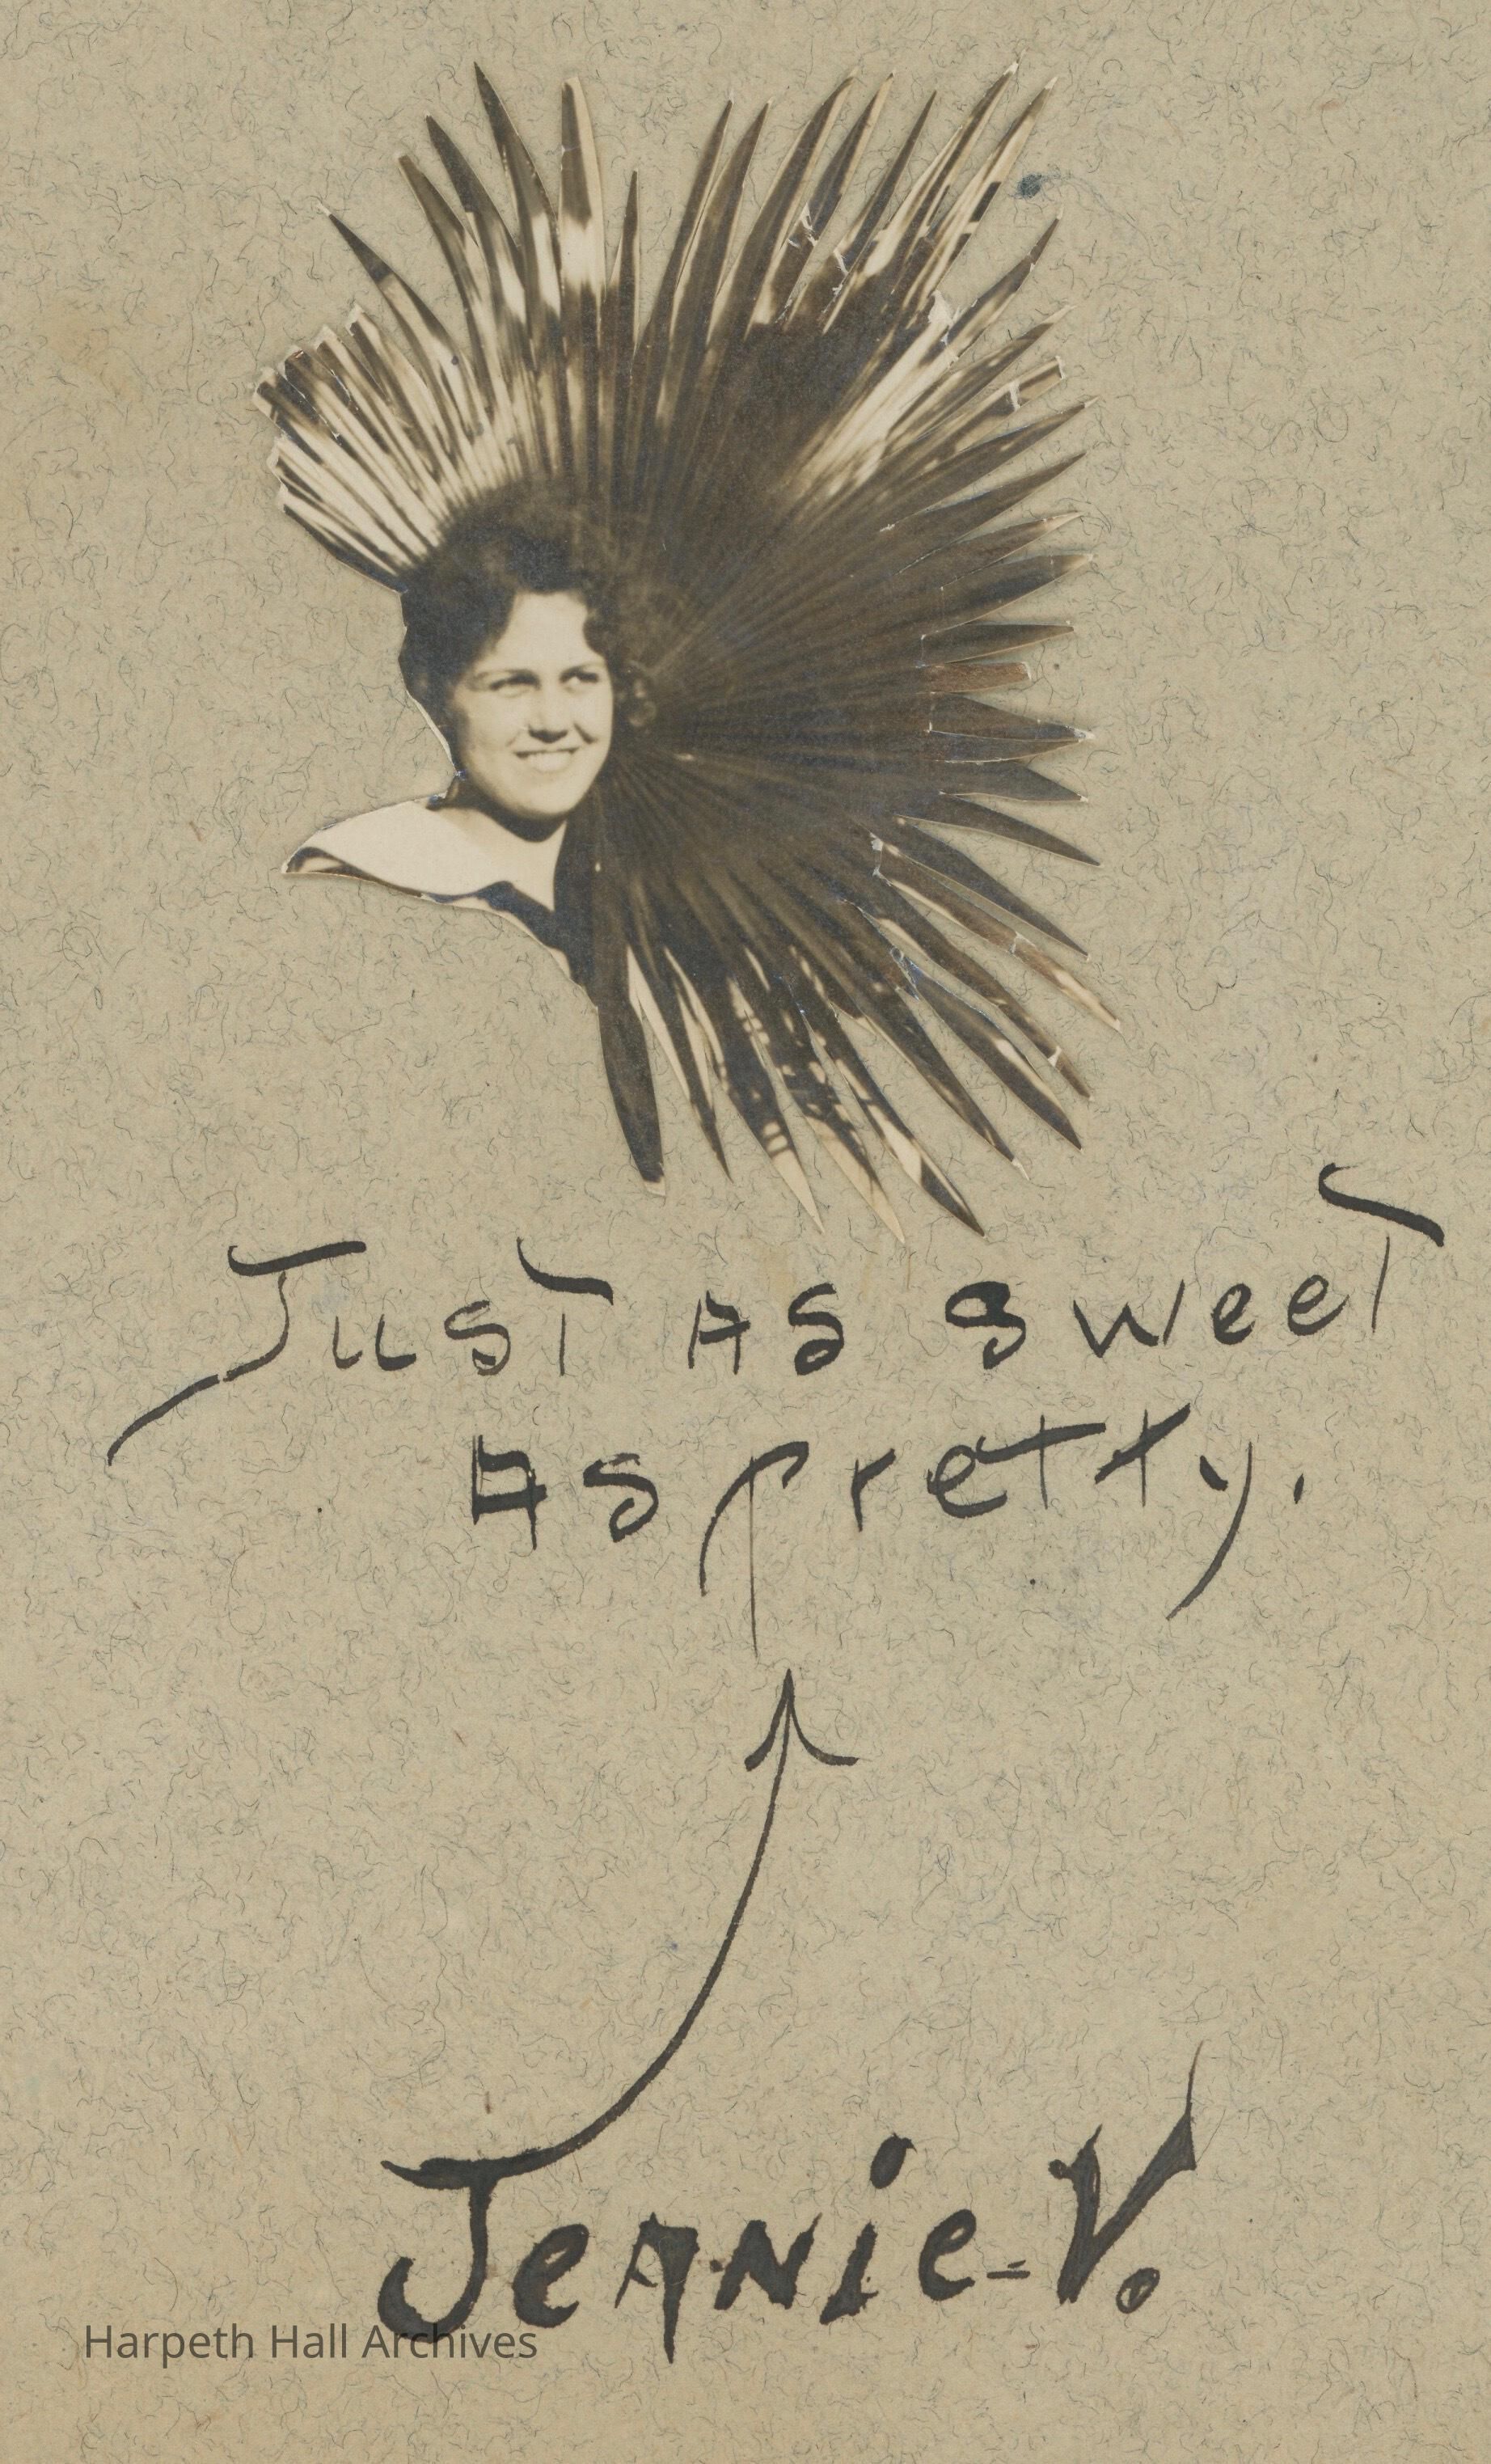 Just As sweet
As pretty.
Jeanie-V.
Harpeth Hall Archives